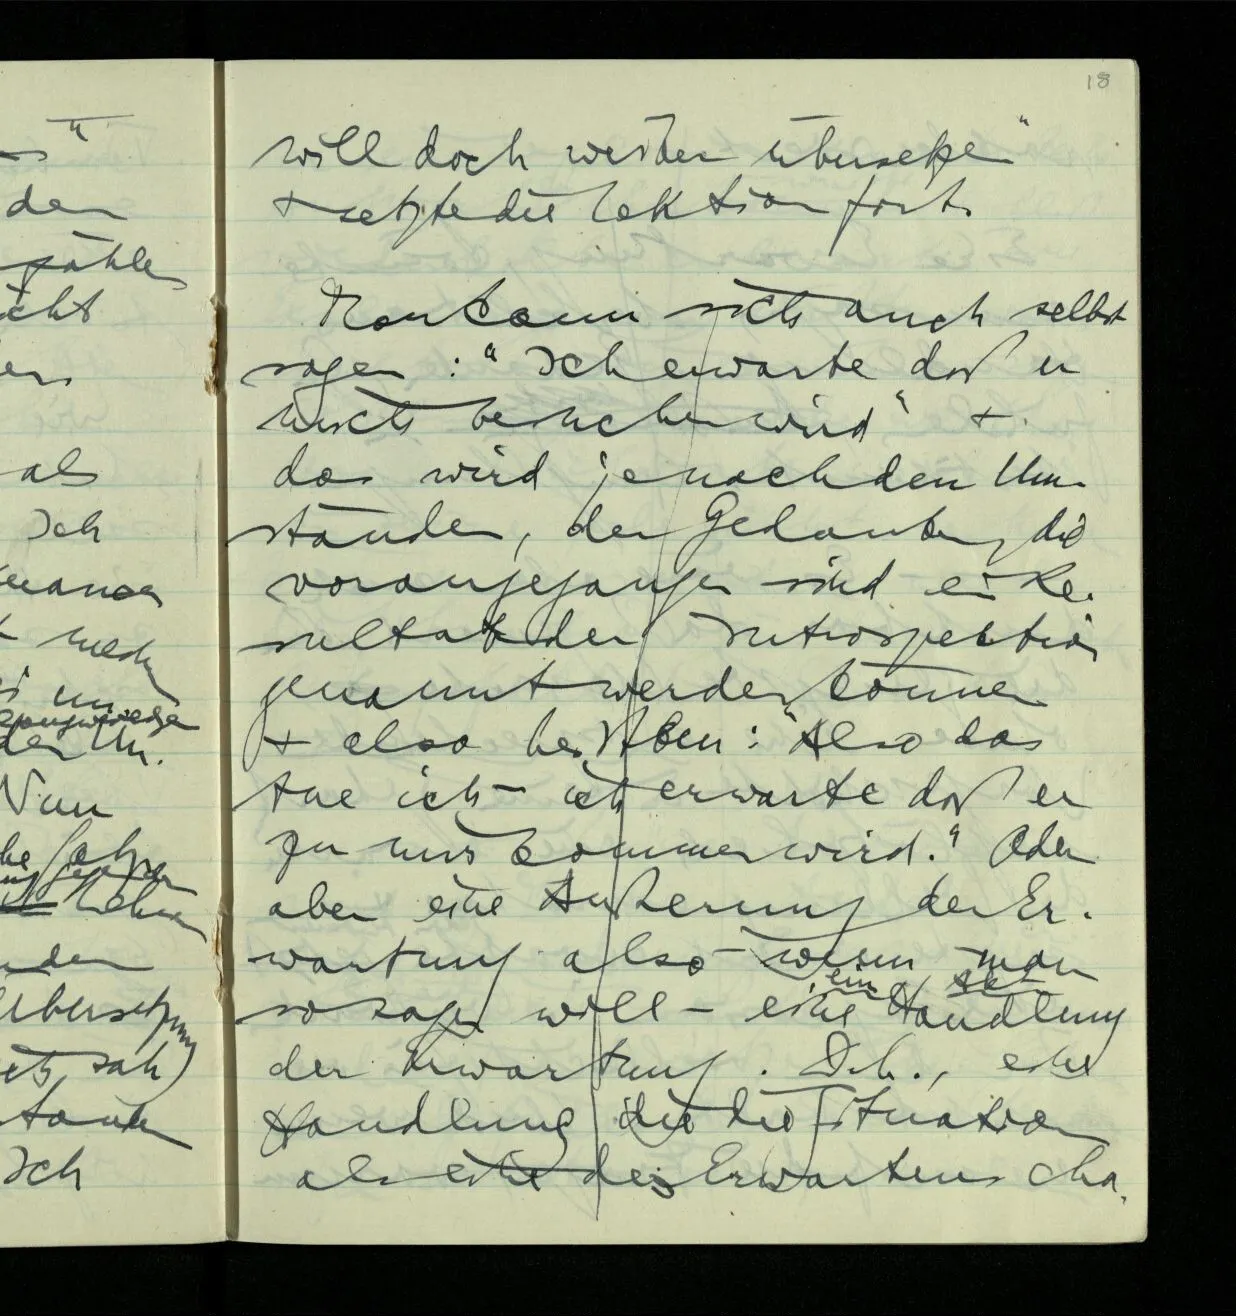 18
will doch weiter übersetzen"
+ setzte die Lektion fort.
Man kann sich auch selbst
sagen: "Ich erwarte daß er
mich besuchen wird" +
das wird je nach den Um-
ständen, den Gedanken, die
vorangegangen sind ein Re-
sultat der Introspektion
genannt werden können
+ also heißen: "Also das
tue ich – ich erwarte daß er
zu mir kommen wird." Oder
aber eine Äußerung der Er-
wartung also – wenn man
ein Akt
so sagen will – eine Handlung
der Erwartung. D.h., eine
Handlung die die Situation
als eine des Erwartens cha-
den
zählen
icht
als
Ich
Nun
der Um.
nden
Übersetzung
sah)
Ich